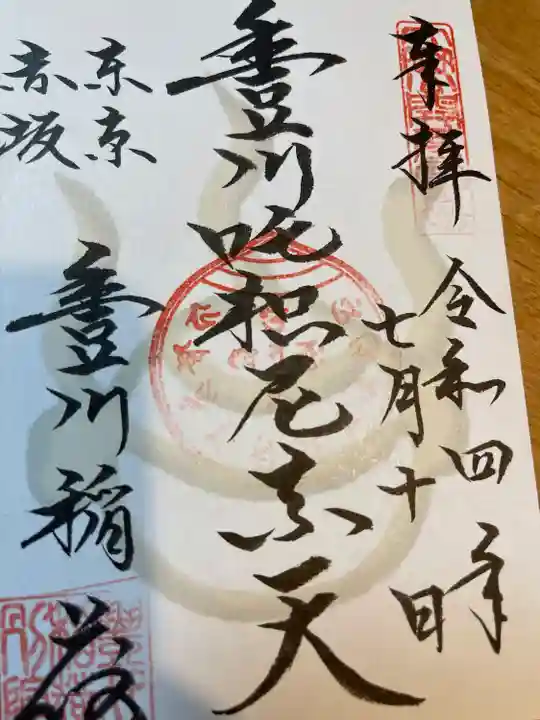 奉拝
令和四年
七月十日
豊川吒枳尼真天
東京
赤坂
豊川稲荷